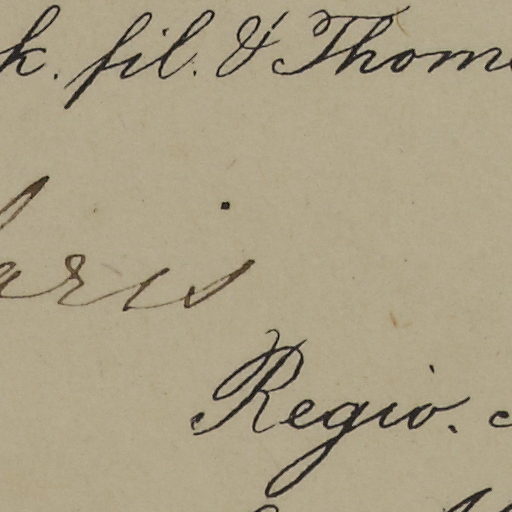 k. fil. & Thom
aris
Regio.